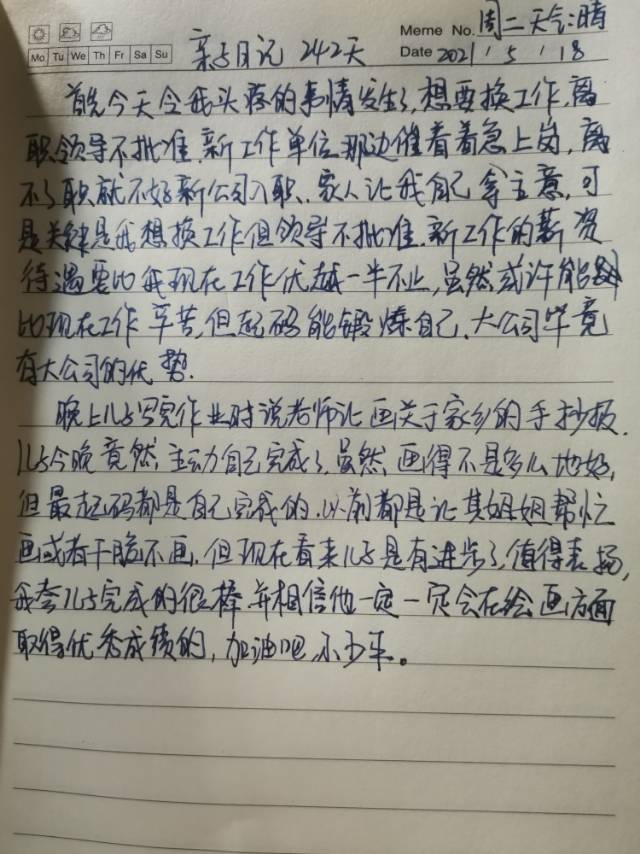 Meme No. 周二 天气:晴
Mo Tu We Th Fr Sa Su
亲子日记 242天
Date 2021 / 5 / 18
首先今天令我头疼的事情发生了,想要换工作,离
职领导不批准,新工作单位那边催着着急上岗,离
不了职就不好新公司入职.家人让我自己拿主意,可
是关键是我想换工作但领导不批准.新工作的薪资
待遇要比我现在工作优越一半不止,虽然,或许能
比现在工作辛苦,但起码能锻炼自己.大公司毕竟
有大公司的优势.
晚上儿子写完作业时说老师让画关于家乡的手抄报.
儿子今晚竟然主动自己完成了,虽然画得不是多么地好,
但最起码都是自己完成的.以前都是让其姐姐帮忙
画或者干脆不画.但现在看来儿子是有进步了,值得表扬,
我夸儿子完成的很棒.并相信他一定一定会在绘画方面
取得优秀成绩的,加油吧,小少年。